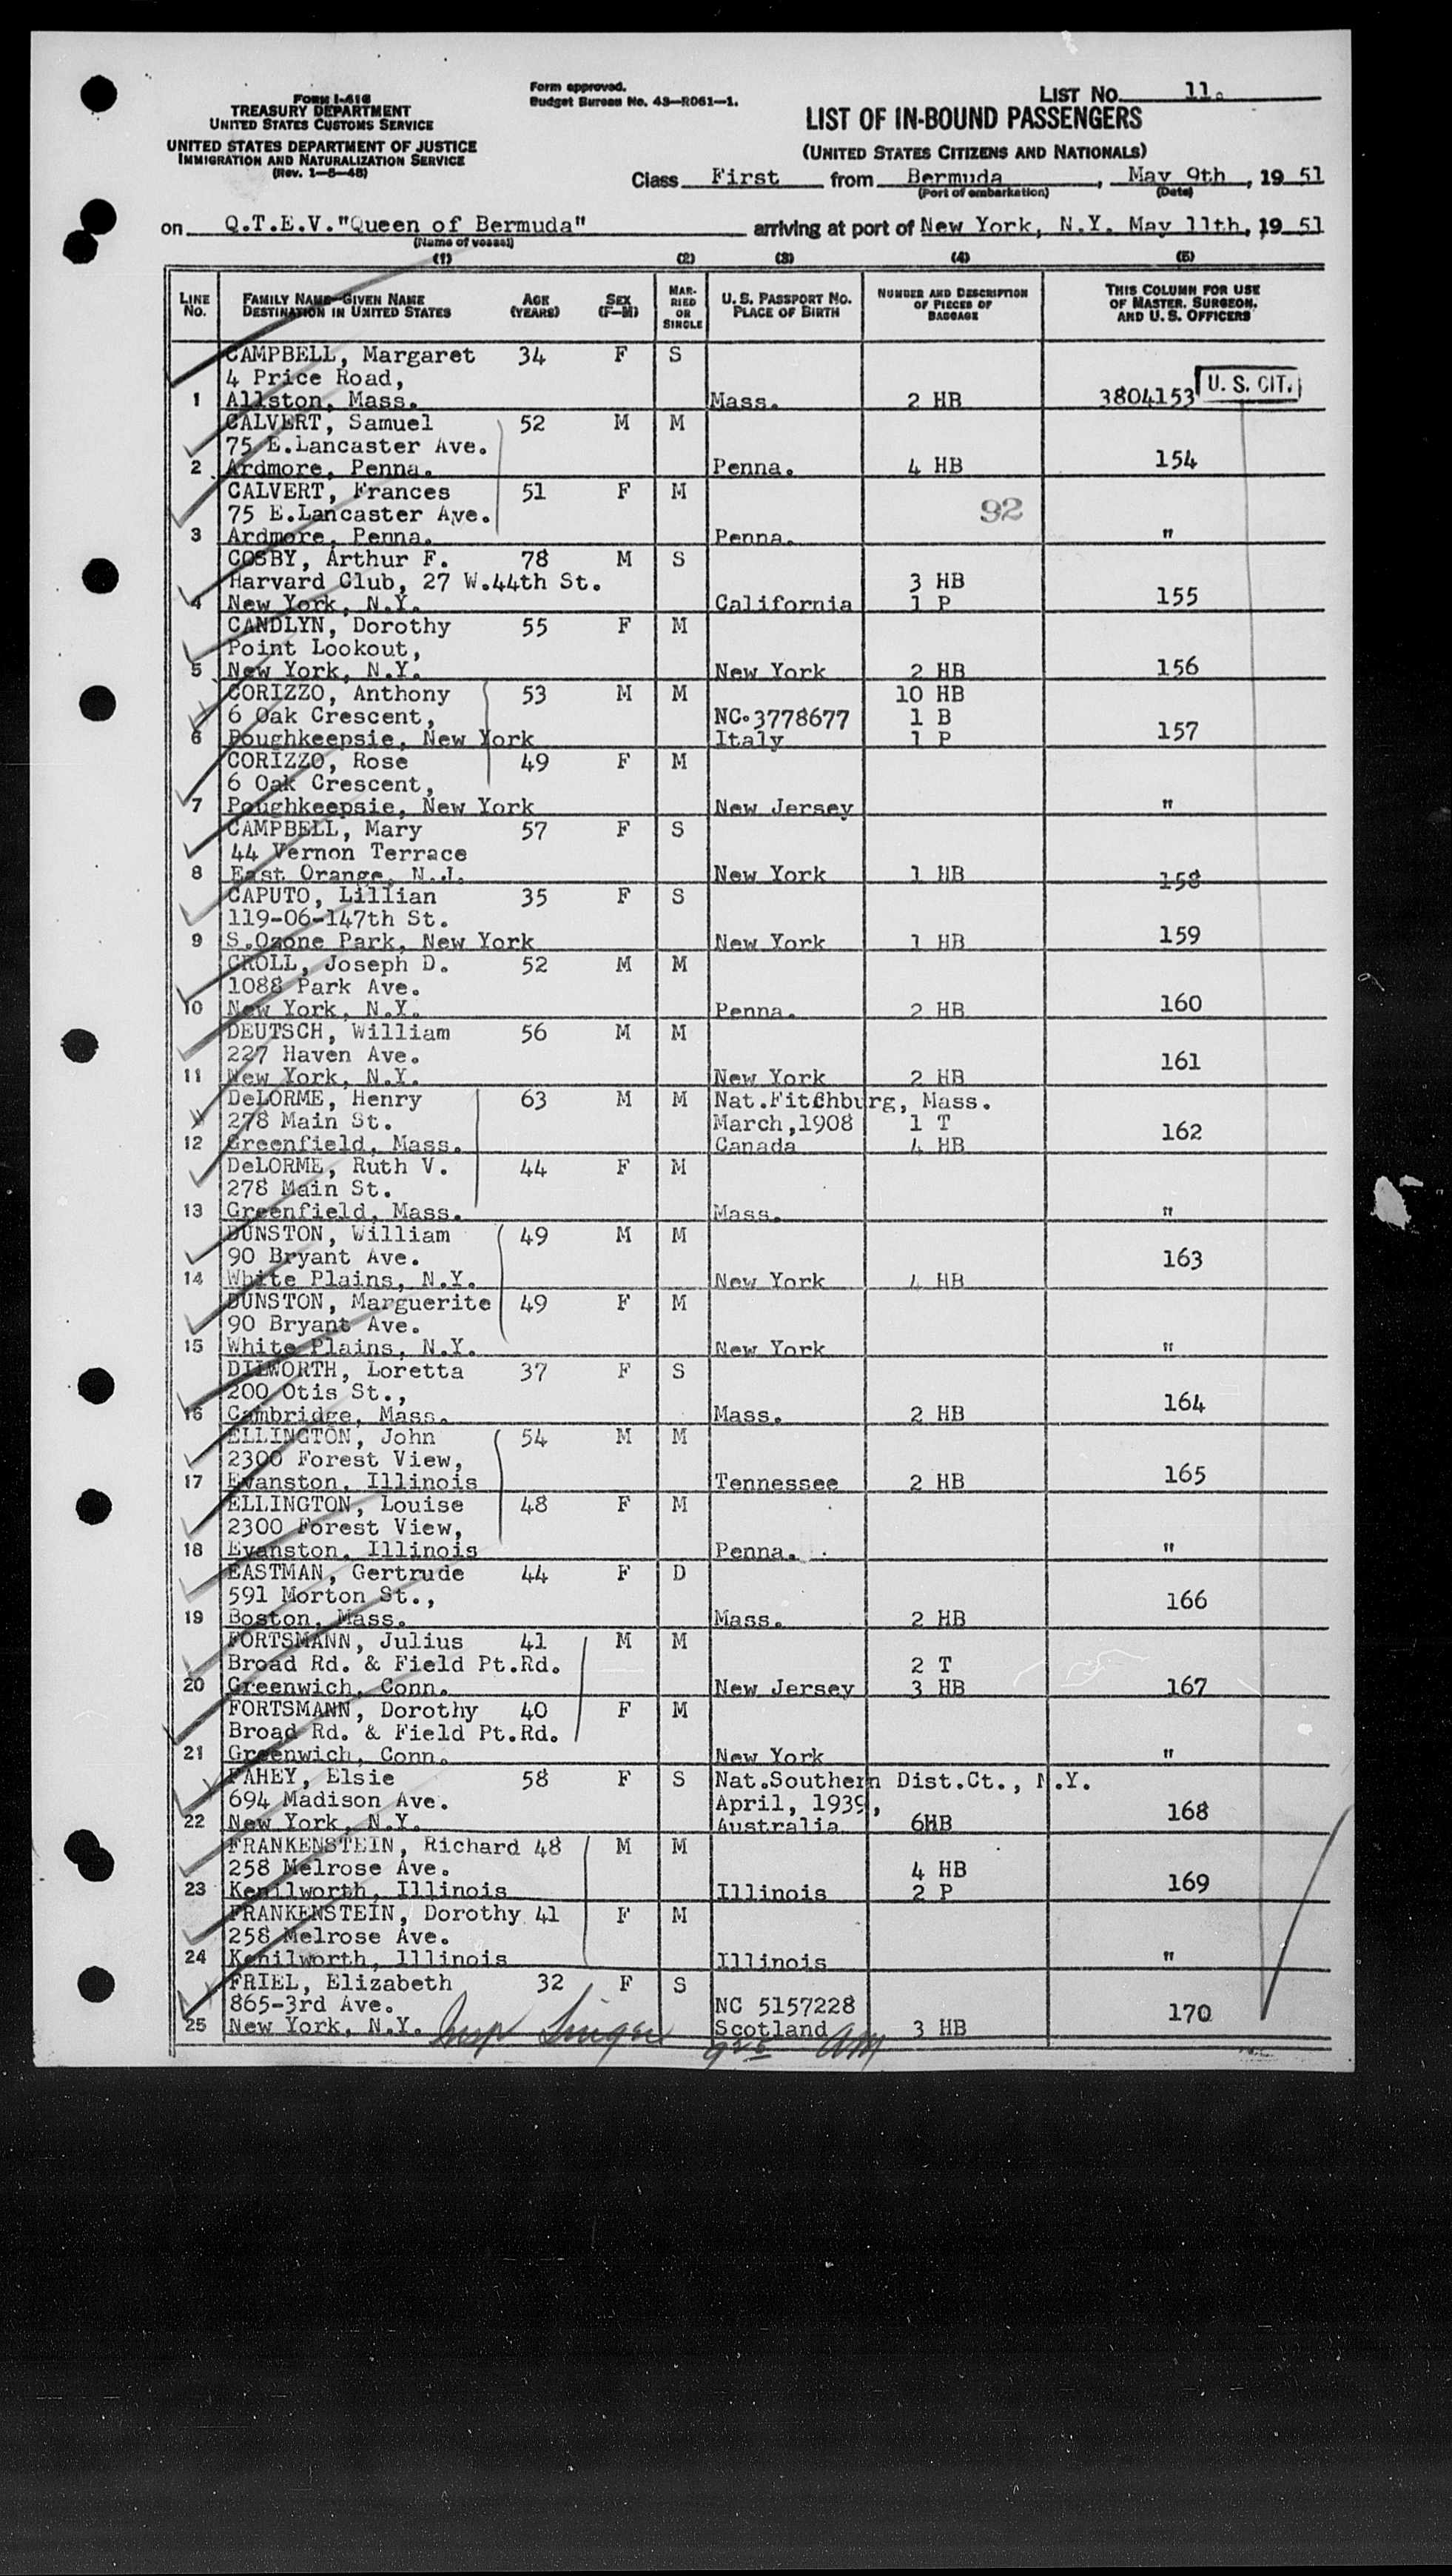 FORM I-416
TREASURY DEPARTMENT
UNITED STATES CUSTOMS SERVICE
UNITED STATES DEPARTMENT OF JUSTICE
IMMIGRATION AND NATURALIZATION SERVICE
(Rev. 1-5-48)
Form approved.
Budget Bureau No. 43-R061-1.
LIST NO. 11.
LIST OF IN-BOUND PASSENGERS
(UNITED STATES CITIZENS AND NATIONALS)
Class First from Bermuda, May 9th, 1951
(Port of embarkation) (Date)
on Q.T.E.V."Queen of Bermuda" arriving at port of New York, N.Y. May 11th, 1951
(Name of vessel)
(1) (2) (3) (4) (5)
LINE NO. FAMILY NAME-GIVEN NAME DESTINATION IN UNITED STATES AGE (YEARS) SEX (F-M) MARRIED OR SINGLE U. S. PASSPORT NO. PLACE OF BIRTH NUMBER AND DESCRIPTION OF PIECES OF BAGGAGE THIS COLUMN FOR USE OF MASTER, SURGEON, AND U. S. OFFICERS
CAMPBELL, Margaret 34 F S
4 Price Road, U. S. CIT.
1 Allston, Mass. Mass. 2 HB 3804153
CALVERT, Samuel 52 M M
75 E.Lancaster Ave.
2 Ardmore, Penna. Penna. 4 HB 154
CALVERT, Frances 51 F M
75 E.Lancaster Ave. 92
3 Ardmore, Penna. Penna. "
COSBY, Arthur F. 78 M S
Harvard Club, 27 W.44th St. 3 HB
4 New York, N.Y. California 1 P 155
CANDLYN, Dorothy 55 F M
Point Lookout,
5 New York, N.Y. New York 2 HB 156
CORIZZO, Anthony 53 M M 10 HB
6 Oak Crescent, NC.3778677 1 B
6 Poughkeepsie, New York Italy 1 P 157
CORIZZO, Rose 49 F M
6 Oak Crescent,
7 Poughkeepsie, New York New Jersey "
CAMPBELL, Mary 57 F S
44 Vernon Terrace
8 East Orange, N.J. New York 1 HB 158
CAPUTO, Lillian 35 F S
119-06-147th St.
9 S.Ozone Park, New York New York 1 HB 159
CROLL, Joseph D. 52 M M
1088 Park Ave.
10 New York, N.Y. Penna. 2 HB 160
DEUTSCH, William 56 M M
227 Haven Ave.
11 New York, N.Y. New York 2 HB 161
DeLORME, Henry 63 M M Nat.Fitchburg, Mass.
278 Main St. March,1908 1 T
12 Greenfield, Mass. Canada 4 HB 162
DeLORME, Ruth V. 44 F M
278 Main St.
13 Greenfield, Mass. Mass. "
DUNSTON, William 49 M M
90 Bryant Ave.
14 White Plains, N.Y. New York 4 HB 163
DUNSTON, Marguerite 49 F M
90 Bryant Ave.
15 White Plains, N.Y. New York "
DILWORTH, Loretta 37 F S
200 Otis St.,
16 Cambridge, Mass. Mass. 2 HB 164
ELLINGTON, John 54 M M
2300 Forest View,
17 Evanston, Illinois Tennessee 2 HB 165
ELLINGTON, Louise 48 F M
2300 Forest View,
18 Evanston, Illinois Penna. "
EASTMAN, Gertrude 44 F D
591 Morton St.,
19 Boston, Mass. Mass. 2 HB 166
FORTSMANN, Julius 41 M M
Broad Rd. & Field Pt.Rd. 2 T
20 Greenwich, Conn. New Jersey 3 HB 167
FORTSMANN, Dorothy 40 F M
Broad Rd. & Field Pt.Rd.
21 Greenwich, Conn. New York "
FAHEY, Elsie 58 F S Nat.Southern Dist.Ct., N.Y.
694 Madison Ave. April, 1939,
22 New York, N.Y. Australia 6HB 168
FRANKENSTEIN, Richard 48 M M
258 Melrose Ave. 4 HB
23 Kenilworth, Illinois Illinois 2 P 169
FRANKENSTEIN, Dorothy 41 F M
258 Melrose Ave.
24 Kenilworth, Illinois Illinois "
FRIEL, Elizabeth 32 F S
865-3rd Ave. NC 5157228
25 New York, N.Y. Scotland 3 HB 170
Insp AM